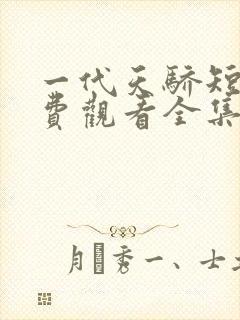 一代天驕短
費觀看全集
秀一、士